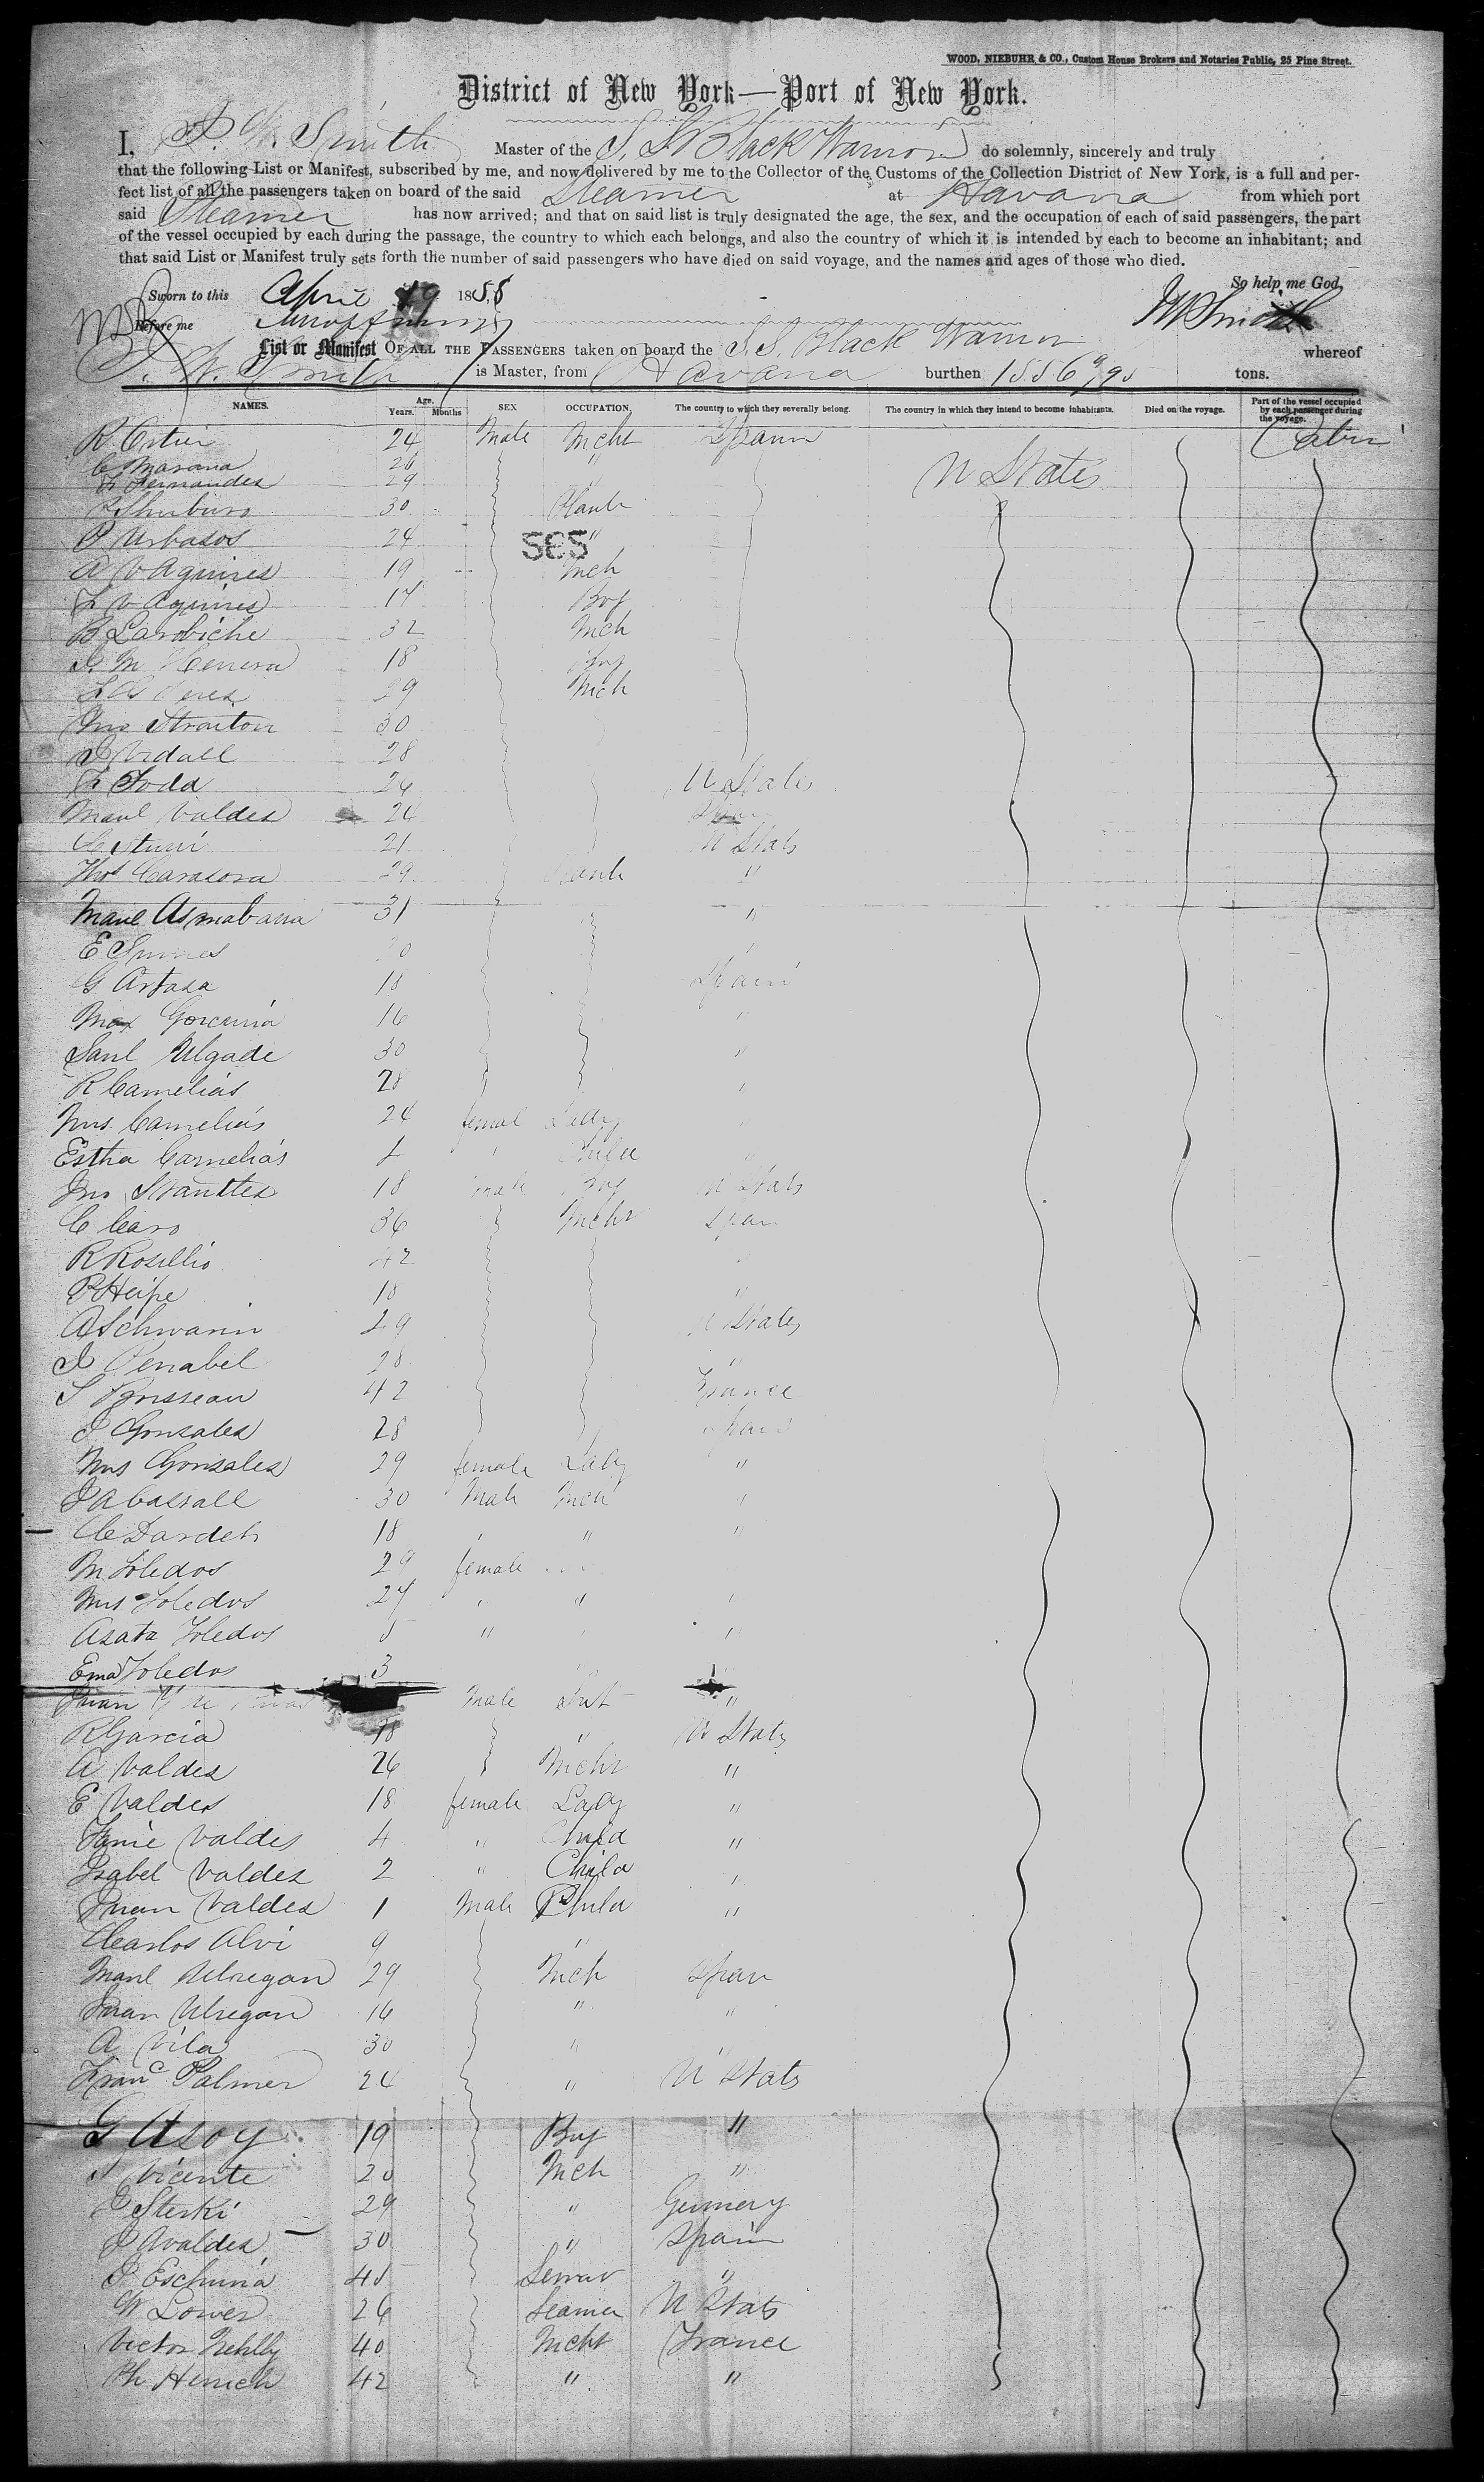 WOOD, NIEBUHR & CO., Custom House Brokers and Notaries Public, 25 Pine Street.
District of New York—Port of New York.
I, J. W. Smith Master of the S. S. Black Warrior do solemnly, sincerely and truly
that the following List or Manifest, subscribed by me, and now delivered by me to the Collector of the Customs of the Collection District of New York, is a full and per-
fect list of all the passengers taken on board of the said Steamer at Havana from which port
said Steamer has now arrived; and that on said list is truly designated the age, the sex, and the occupation of each of said passengers, the part
of the vessel occupied by each during the passage, the country to which each belongs, and also the country of which it is intended by each to become an inhabitant; and
that said List or Manifest truly sets forth the number of said passengers who have died on said voyage, and the names and ages of those who died.
So help me God,
Sworn to this April 19 1858 JWSmith
Before me
List or Manifest OF ALL THE PASSENGERS taken on board the S. S. Black Warrior whereof
J. W. Smith is Master, from Havana burthen 1556 tons.
NAMES. Age. Years. Months SEX OCCUPATION. The country to which they severally belong. The country in which they intend to become inhabitants. Died on the voyage. Part of the vessel occupied by each passenger during the voyage.
24 Male Mcht Spain Cabin
C Masana 26 " U States
F Fernandes 29
30
P Urbasos 24 "
SES
A V Aguires 19 Mch
F V Aguires 14 Boy
B Larobiche 32 Mch
J. M Herrera 18 Boy
29 Mch
Jno Straiton 30
J Vidall 28
F Todd 24 U States
Manl Valdes 24 Spain
21 U Stats
Thos Carasora 29 "
Manl Asmabana 31 "
E
G Artasa 18 Spain
16 "
Saul Ulgade 30 "
R Camelias 28 "
Mrs Camelias 24 femal Lady
Estha Camelias Child
Jno 18 male Boy U Stats
C Caro 36 Mcht Spain
R Rosillio 42
R Heipe 18 "
A Schwarin 29 U States
J Penabel 28 "
42 France
J Gonsales 28 Spain
Mrs Gonsales 29 female Lady "
J A Cassall 30 Male Mch "
C Dardets 18 " " "
M Toledos 29 female
Mrs Toledos 24 " " "
Asata Toledos 5 " "
Ema Toledos 3
Juan Male "
R Garcia 18 " U Stats
A Valdes 26 Mcht "
E Valdes 18 female Lady "
Fanie Valdes 4 " Child "
Isabel Valdes 2 " Child "
Juan Valdes 1 Male Child "
Charlos Alvi 9 "
Manl Ulregon 29 Mch Spain
Juan Ulregon 16 " "
A Vila 30 "
Franc Palmer 24 " U Stats
G Asoy 19 Boy "
J Vicente 20 Mch "
J Sterki 29 " Germery
J Avaldes 30 " Spain
J Eschuna 45 "
W Lower 26 Seamen U Stats
Victor 40 Mcht France
Ph Hench 42 " "